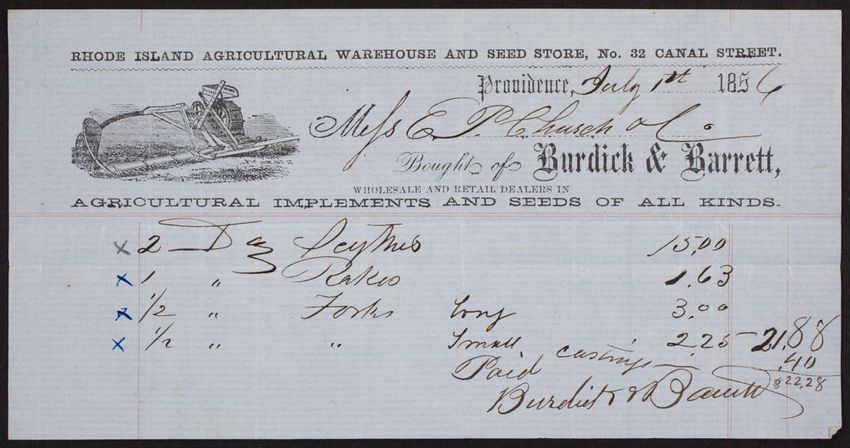 RHODE ISLAND AGRICULTURAL WAREHOUSE AND SEED STORE, No. 32 CANAL STREET.
Providence, July 1st 1856
Mess E. P. Church & Co
Bought of Burdick & Barrett,
WHOLESALE AND RETAIL DEALERS IN
AGRICULTURAL IMPLEMENTS AND SEEDS OF ALL KINDS.
x 2 Doz Scythes 15.00
x 1 " Rakes 1.63
x 1/2 " Forks Long 3.00
x 1/2 " " Small 2.25 - 21.88
castings — .40
$22.28
Paid
Burdick & Barrett